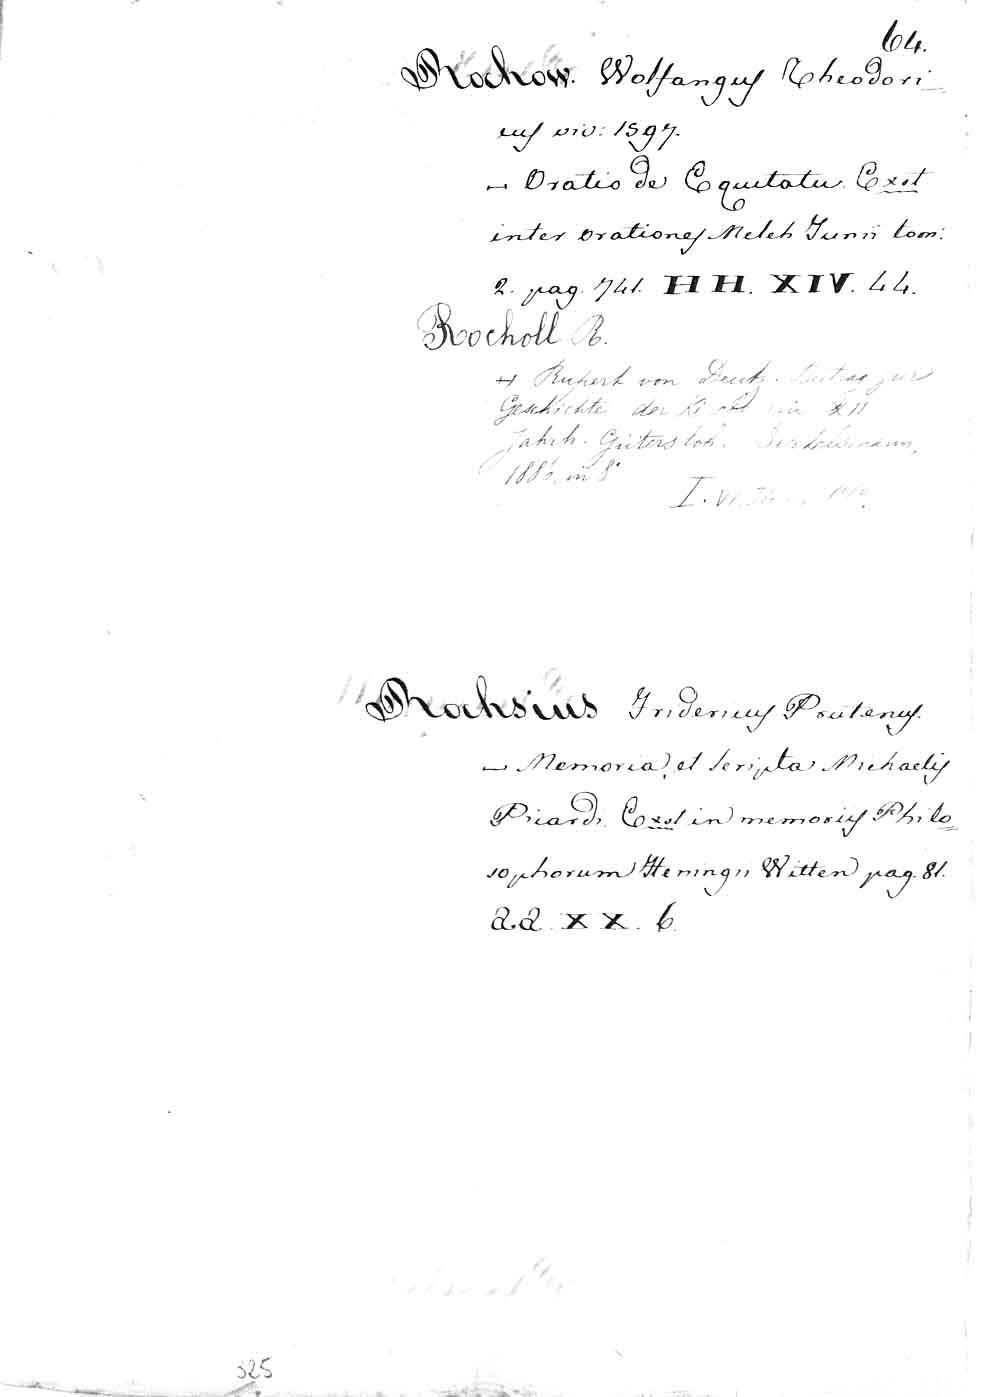 64.
Rochow. Wolfangus Theodori-
cus viv: 1597.
— Oratio de Equitatu. Exst
inter orationes Melch Junii tom:
2. pag. 741. HH. XIV. 44.
Rocholl R.
H Rupert von Deutz. Beitrag zur
Geschichte der Kirche im XII
Jahrh. Gütersloh.
1886. in 8°
I. VI.
Rochsius Fridericus Prutenus.
— Memoria et scripta Michaelis
Picardi. Exst in memoriis Philo=
sophorum Heningii Witten pag. 81.
aa. XX. 6.
325